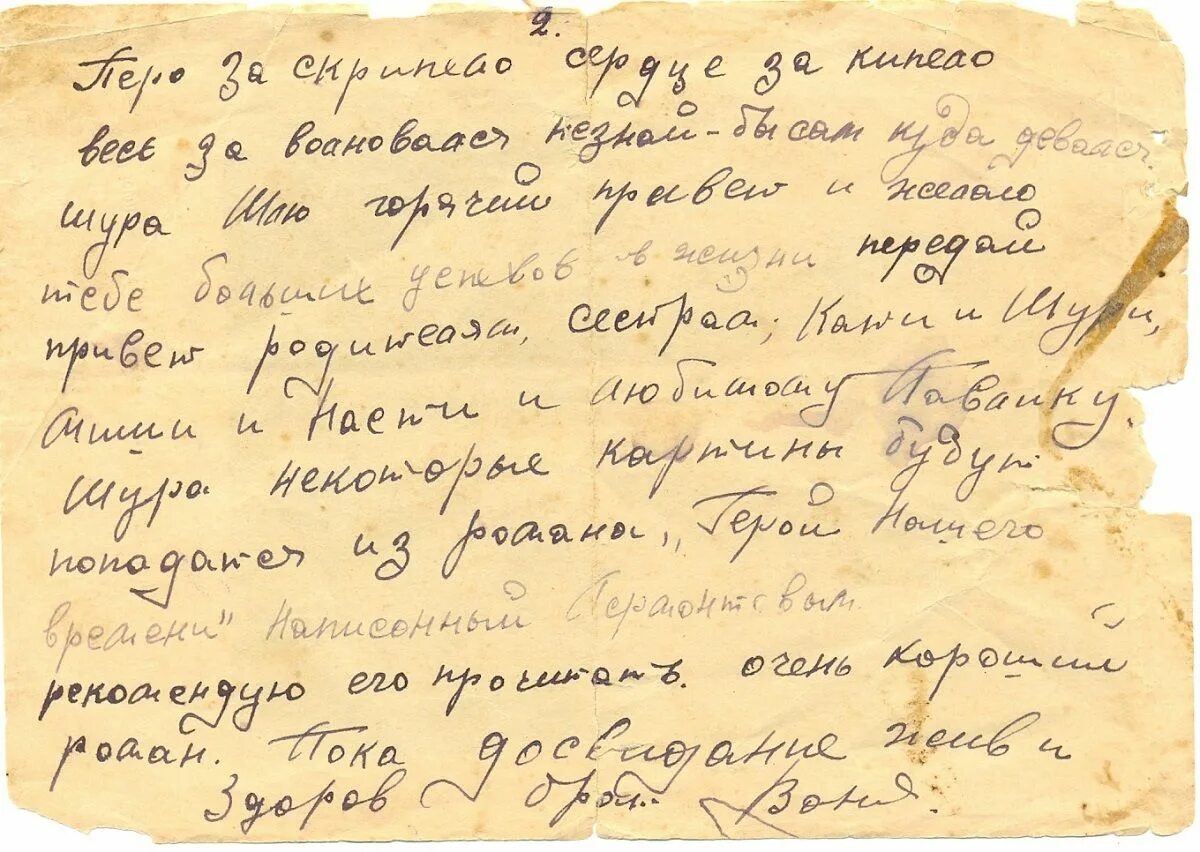 2.
Перо за скрипело сердце за кипело
весь за волновался незнай-бы сам куда девался.
шура Шлю горячий привет и желаю
тебе больших успехов в жизни передай
привет родителям, сестрам; Кати и Шуры,
и Насти и любимому Павлику.
Шура некоторые картины будут
попадатся из романа, „Герой Нашего
времени" Написонный Лермонтовым.
рекомендую его прочитать. очень хороший
роман. Пока досвидание жив и
Здоров брат Ваня.